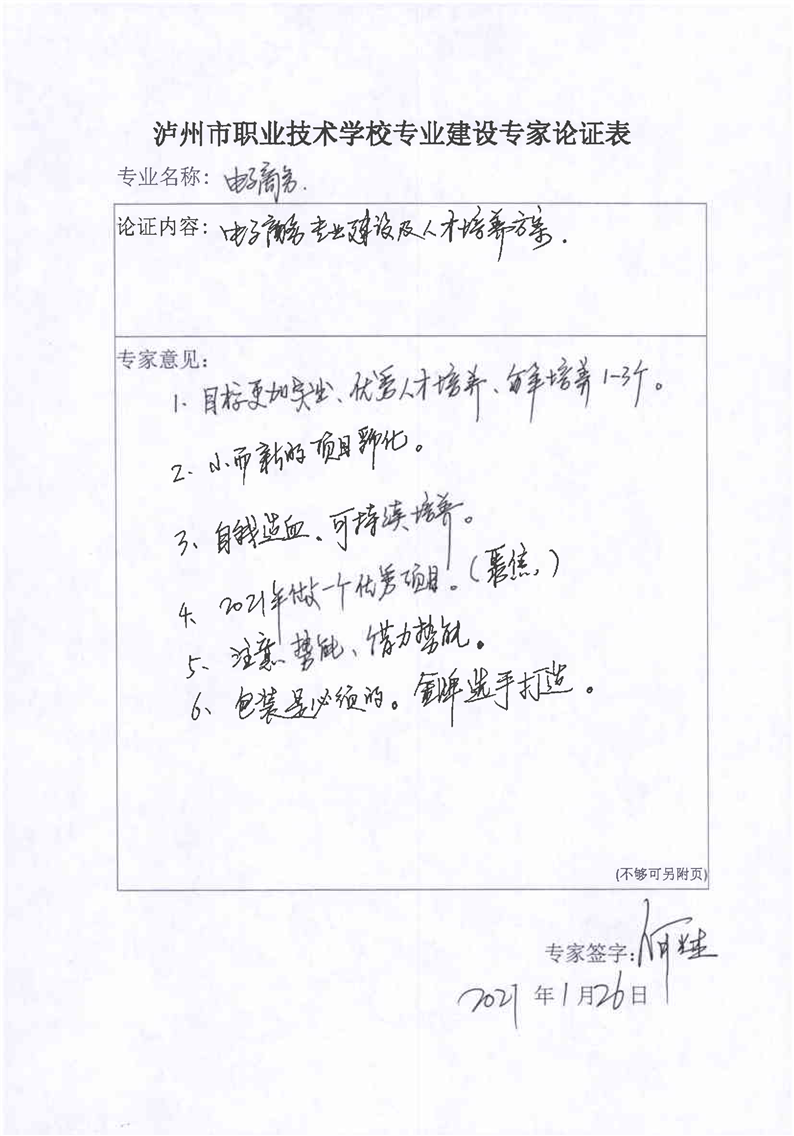 泸州市职业技术学校专业建设专家论证表
专业名称：电子商务.
论证内容：电子商务专业建设及人才培养方案.
专家意见：
1. 目标更加突出、优秀人才培养、每年培养1-3个。
2、小而新的项目孵化。
3、自我造血、可持续培养。
4、2021年做一个优秀项目。(聚焦)
5、注意势能、借力势能。
6、包装是必须的。金牌选手打造。
(不够可另附页)
专家签字：何
2021年1月26日